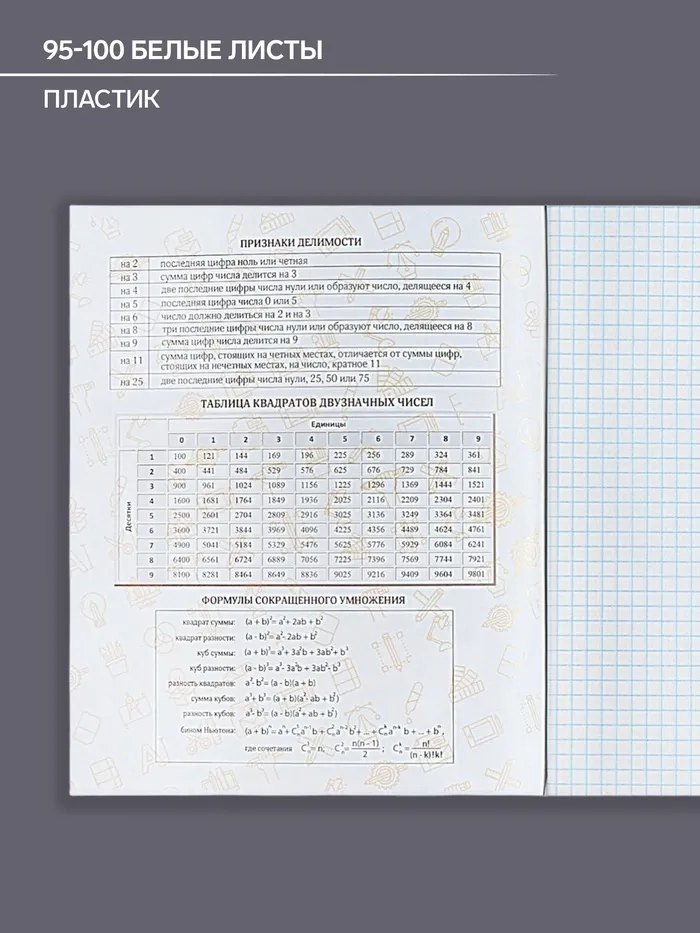 95-100 БЕЛЫЕ ЛИСТЫ
ПЛАСТИК
ПРИЗНАКИ ДЕЛИМОСТИ
на 2 последняя цифра ноль или четная
на 3 сумма цифр числа делится на 3
на 4 две последние цифры числа нули или образуют число, делящееся на 4
на 5 последняя цифра числа 0 или 5
на 6 число должно делиться на 2 и на 3
на 8 три последние цифры числа нули или образуют число, делящееся на 8
на 9 сумма цифр числа делится на 9
на 11 сумма цифр, стоящих на четных местах, отличается от суммы цифр,
стоящих на нечетных местах, на число, кратное 11
на 25 две последние цифры числа нули, 25, 50 или 75
ТАБЛИЦА КВАДРАТОВ ДВУЗНАЧНЫХ ЧИСЕЛ
Единицы
0 1 2 3 4 5 6 7 8 9
Десятки
1 100 121 144 169 196 225 256 289 324 361
2 400 441 484 529 576 625 676 729 784 841
3 900 961 1024 1089 1156 1225 1296 1369 1444 1521
4 1600 1681 1764 1849 1936 2025 2116 2209 2304 2401
5 2500 2601 2704 2809 2916 3025 3136 3249 3364 3481
6 3600 3721 3844 3969 4096 4225 4356 4489 4624 4761
7 4900 5041 5184 5329 5476 5625 5776 5929 6084 6241
8 6400 6561 6724 6889 7056 7225 7396 7569 7744 7921
9 8100 8281 8464 8649 8836 9025 9216 9409 9604 9801
ФОРМУЛЫ СОКРАЩЕННОГО УМНОЖЕНИЯ
квадрат суммы: (a + b)²= a²+ 2ab + b²
квадрат разности: (a - b)²= a²- 2ab + b²
куб суммы: (a + b)³= a³+ 3a²b + 3ab²+ b³
куб разности: (a - b)³= a³- 3a²b + 3ab²- b³
разность квадратов: a²- b²= (a - b)(a + b)
сумма кубов: a³+ b³= (a + b)(a²- ab + b²)
разность кубов: a³- b³= (a - b)(a²+ ab + b²)
бином Ньютона: (a + b)ⁿ= aⁿ+ C¹ₙaⁿ⁻¹ b + C²ₙaⁿ⁻² b²+ ... + Cᵏₙaⁿ⁻ᵏ b + ... + bⁿ,
где сочетания C¹ₙ= n; C²ₙ= n(n - 1)/2 ; Cᵏₙ= n!/(n - k)!k!